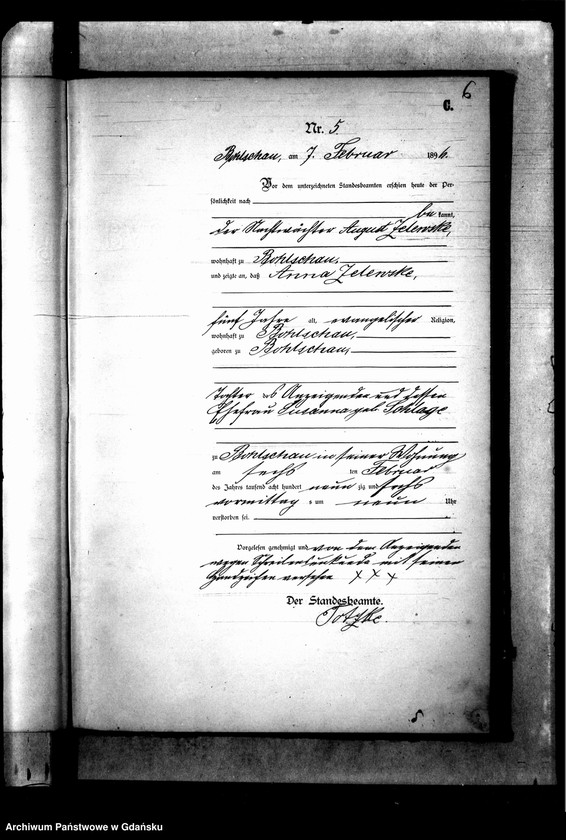 6
C.
Nr. 5
Bohlschau, am 7. Februar 1896.
Vor dem unterzeichneten Standesbeamten erschien heute der Per-
sönlichkeit nach
be kannt,
der Nachtwächter August Zelewske,
wohnhaft zu Bohlschau,
und zeigte an, daß Anna Zelewske,
fünf Jahre alt, evangelischer Religion,
wohnhaft zu Bohlschau,
geboren zu Bohlschau,
Tochter des Anzeigenden und dessen
Ehefrau Susanna geb. Sohlage
zu Bohlschau in seiner Wohnung
am sechs ten Februar
des Jahres tausend acht hundert neun zig und sechs
vormittag s um neun Uhr
verstorben sei.
Vorgelesen genehmigt und von dem Anzeigenden
wegen Schreibensunkunde mit seinen
Handzeichen versehen X X X
Der Standesbeamte.
Totzke.
Archiwum Państwowe w Gdańsku